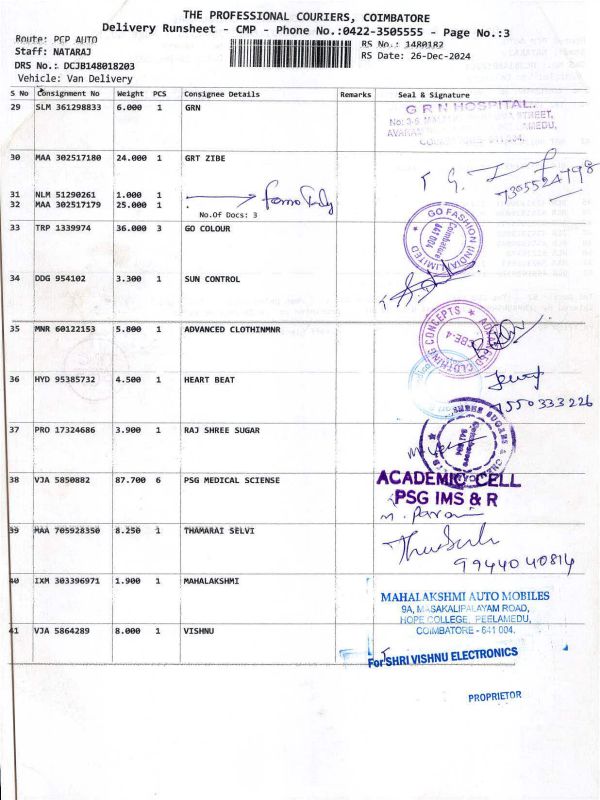 THE PROFESSIONAL COURIERS, COIMBATORE
Delivery Runsheet - CMP - Phone No.:0422-3505555 - Page No.:3
Route: PCP AUTO
Staff: NATARAJ
RS No.: 1480182
DRS No.: DCJB148018203
RS Date: 26-Dec-2024
Vehicle: Van Delivery
S No Consignment No Weight PCS Consignee Details Remarks Seal & Signature
29 SLM 361298833 6.000 1 GRN
G R N HOSPITAL.
30 MAA 302517180 24.000 1 GRT ZIBE
7305524798
31 NLM 51290261 1.000 1
32 MAA 302517179 25.000 1
No.Of Docs: 3
33 TRP 1339974 36.000 3 GO COLOUR
GO FASHION (INDIA) LIMITED
Coimbatore
641 004
34 DDG 954102 3.300 1 SUN CONTROL
35 MNR 60122153 5.800 1 ADVANCED CLOTHINMNR
ADVANCED CLOTHING CONCEPTS
CBE-4
36 HYD 95385732 4.500 1 HEART BEAT
7550333226
37 PRO 17324686 3.900 1 RAJ SHREE SUGAR
38 VJA 5850882 87.700 6 PSG MEDICAL SCIENSE
ACADEMIC CELL
PSG IMS & R
39 MAA 705928350 8.250 1 THAMARAI SELVI
9944040814
40 IXM 303396971 1.900 1 MAHALAKSHMI
MAHALAKSHMI AUTO MOBILES
9A, MASAKALIPALAYAM ROAD,
HOPE COLLEGE, PEELAMEDU,
COIMBATORE - 641 004.
41 VJA 5864289 8.000 1 VISHNU
For SHRI VISHNU ELECTRONICS
PROPRIETOR